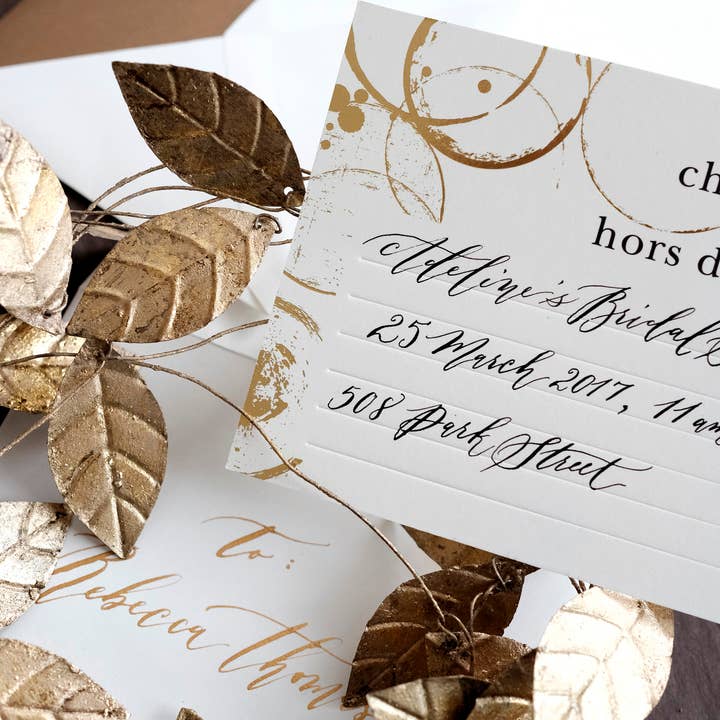 ch
hors d
Adeline's Bridal
25 March 2017, 11am
508 Park Street
to:
Rebecca Thom